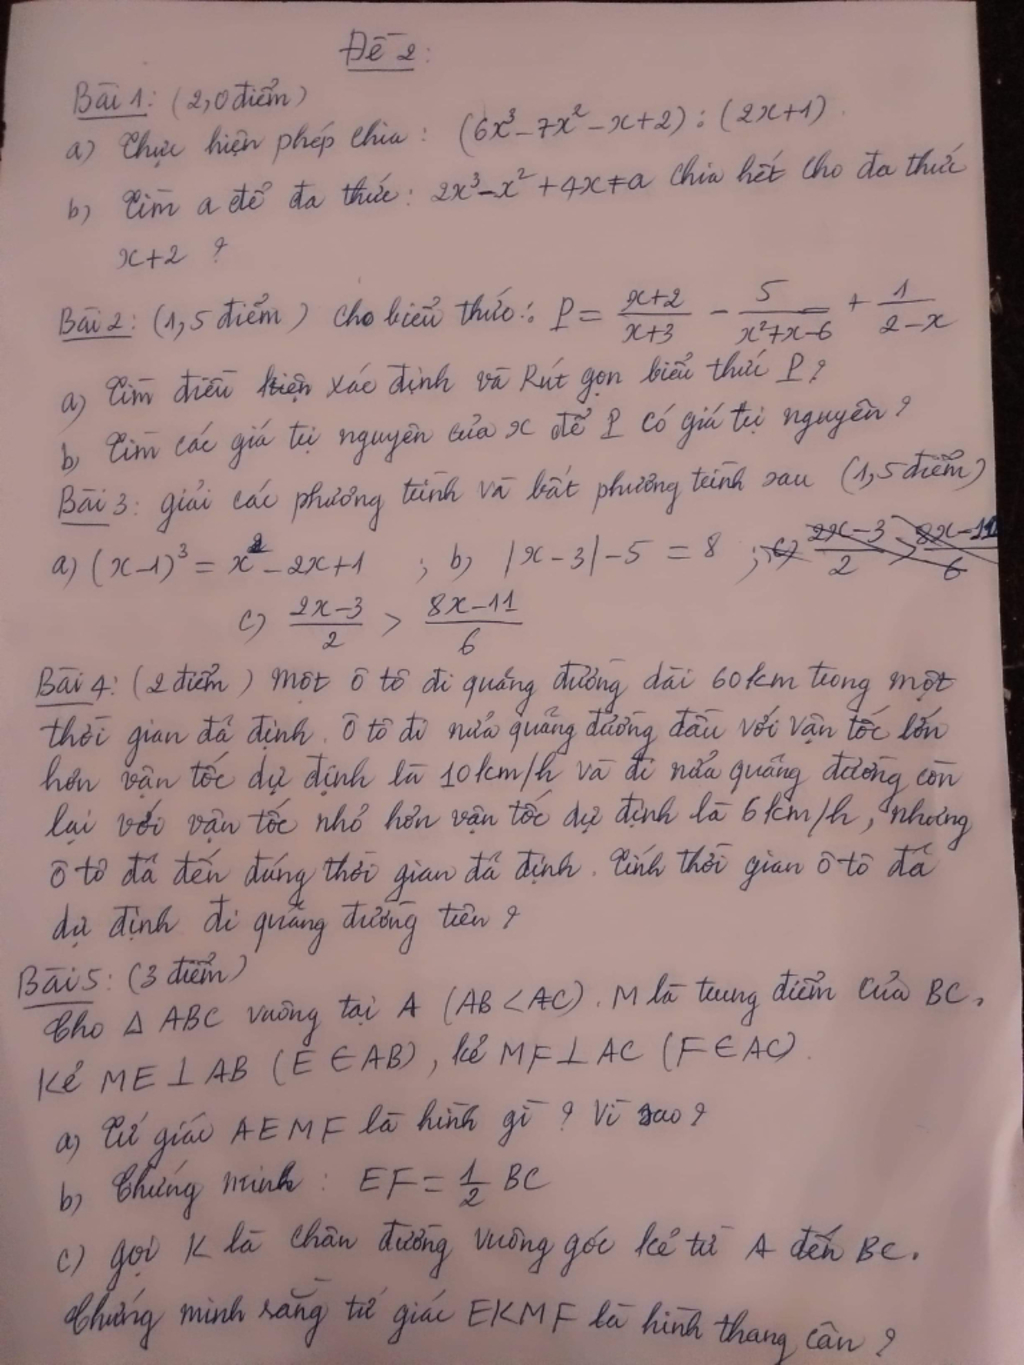 Đề 2:
Bài 1: (2,0 điểm)
a) Thực hiện phép chia: (6x³ - 7x² - x + 2) : (2x+1).
b) Tìm a để đa thức: 2x³ - x² + 4x + a chia hết cho đa thức
x+2 ?
Bài 2: (1,5 điểm) Cho biểu thức: P = (x+2)/(x+3) - 5/(x²+x-6) + 1/(2-x)
a) Tìm điều kiện xác định và Rút gọn biểu thức P?
b) Tìm các giá trị nguyên của x để P có giá trị nguyên?
Bài 3: giải các phương trình và bất phương trình sau (1,5 điểm)
a) (x-1)³ = x² - 2x + 1 ; b) |x-3| - 5 = 8 ; c) (2x-3)/2 > (8x-11)/6
c) (2x-3)/2 > (8x-11)/6
Bài 4: (2 điểm) Một ô tô đi quãng đường dài 60km trong một
thời gian đã định. Ô tô đi nửa quãng đường đầu với vận tốc lớn
hơn vận tốc dự định là 10km/h và đi nửa quãng đường còn
lại với vận tốc nhỏ hơn vận tốc dự định là 6km/h, nhưng
ô tô đã đến đúng thời gian đã định. Tính thời gian ô tô đã
dự định đi quãng đường trên?
Bài 5: (3 điểm)
Cho Δ ABC vuông tại A (AB < AC). M là trung điểm của BC.
Kẻ ME ⊥ AB (E ∈ AB), kẻ MF ⊥ AC (F ∈ AC).
a) Tứ giác AEMF là hình gì? Vì sao?
b) Chứng minh: EF = 1/2 BC
c) gọi K là chân đường vuông góc kẻ từ A đến BC.
Chứng minh rằng tứ giác EKMF là hình thang cân?